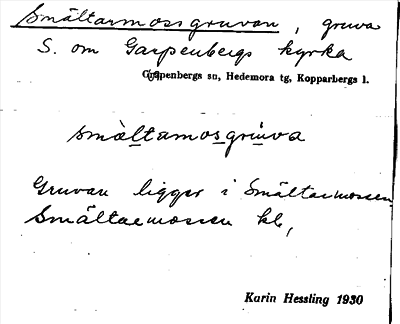 Smältarmossgruvan, gruva
S. om Garpenbergs kyrka
Garpenbergs sn, Hedemora tg, Kopparbergs l.
smàltamosgruva
Gruvan ligger i Smältarmossen
Smältarmossen kb,
Karin Hessling 1930